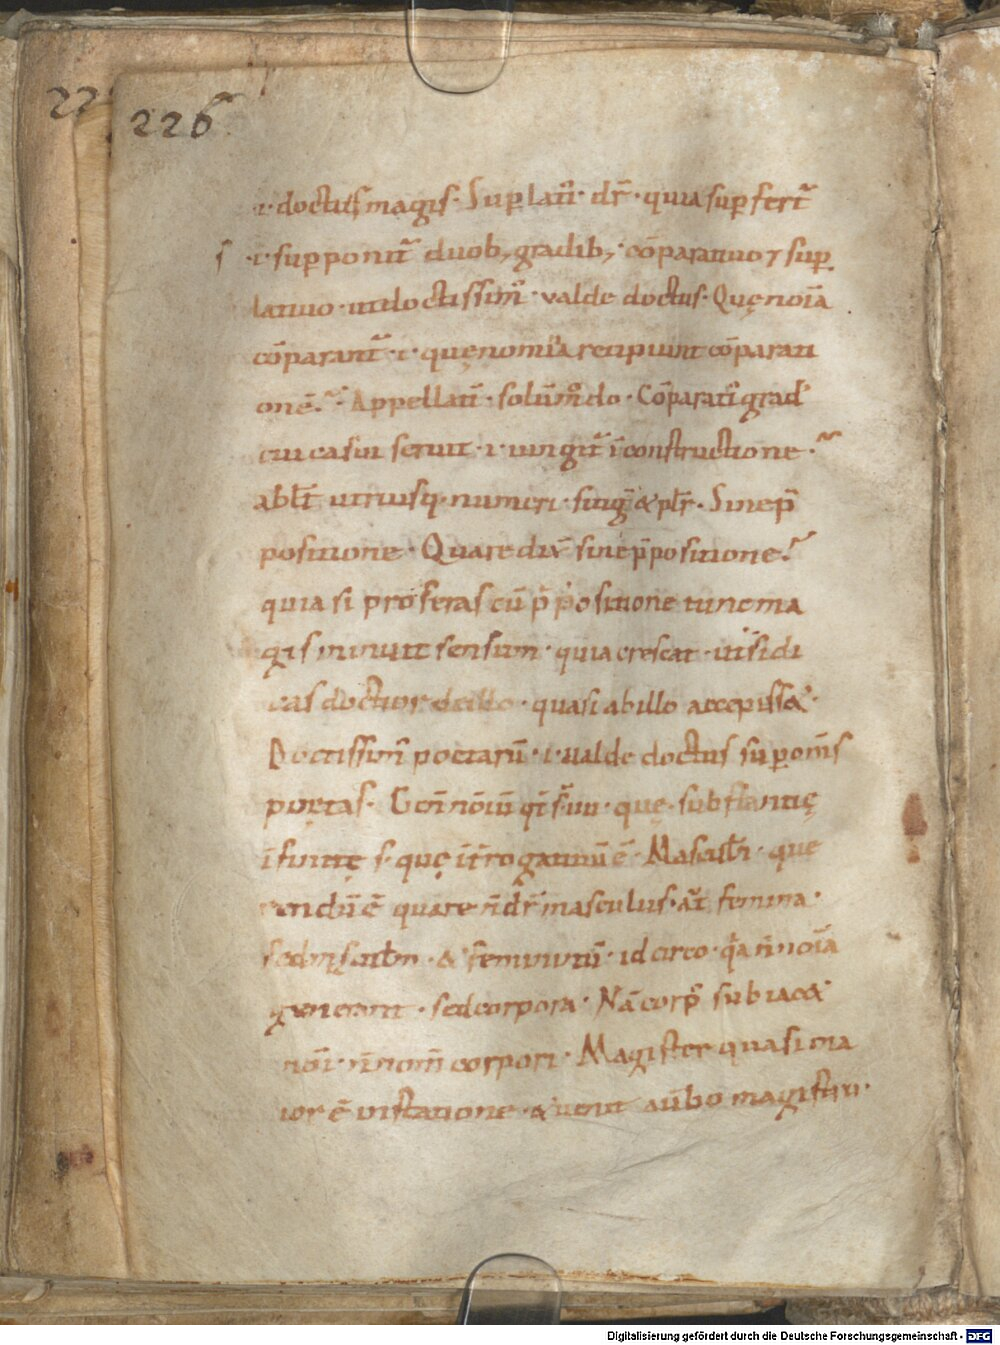 22
226
.i. doctus magis. Suplatiꝰ dr̄. quia supfert᷑
ſ .i. supponit᷑ duob; gradib; cōparatiuo ⁊ sup
latiuo. ut doctissimꝰ. valde doctus. Quę noīa
cōparant᷑ .i. quę nomīa recipiunt cōparati
onē. Appellatiua. solūmodo. Cōparatiꝰ gradꝰ
cui casui seruit .i. iungit᷑ ī constructione.
ablt̄ utriusq; numeri. sing̅ & plr̄. Sine p̄
positione. Quare dix̄ sine p̄positione.
quia si proferas cū p̄positione tunc ma
gis minuit sensum. quia crescat. ut si di
cas doctior de illo. quasi ab illo accepisset.
Doctissimꝰ poetarū .i. ualde doctus sup om̄s
poetas. Gen̄ nōiū qd̄ s̄ iiii. que. substantię
ī siue s. quę īt̄rogatiuū ē. Mascul̄. que
rendū ē quare n̄ dr̄ masculus. aut femina.
sed masculin̄. & femininū. idcirco. q̄a n̄ noīa
generant. sed corpora. Nā corpꝰ subiacet
nōi. n̄ nom̄ corpori. Magister quasi ma
ior ē in statione. & uenit a uerbo magistro.
Digitalisierung gefördert durch die Deutsche Forschungsgemeinschaft - DFG